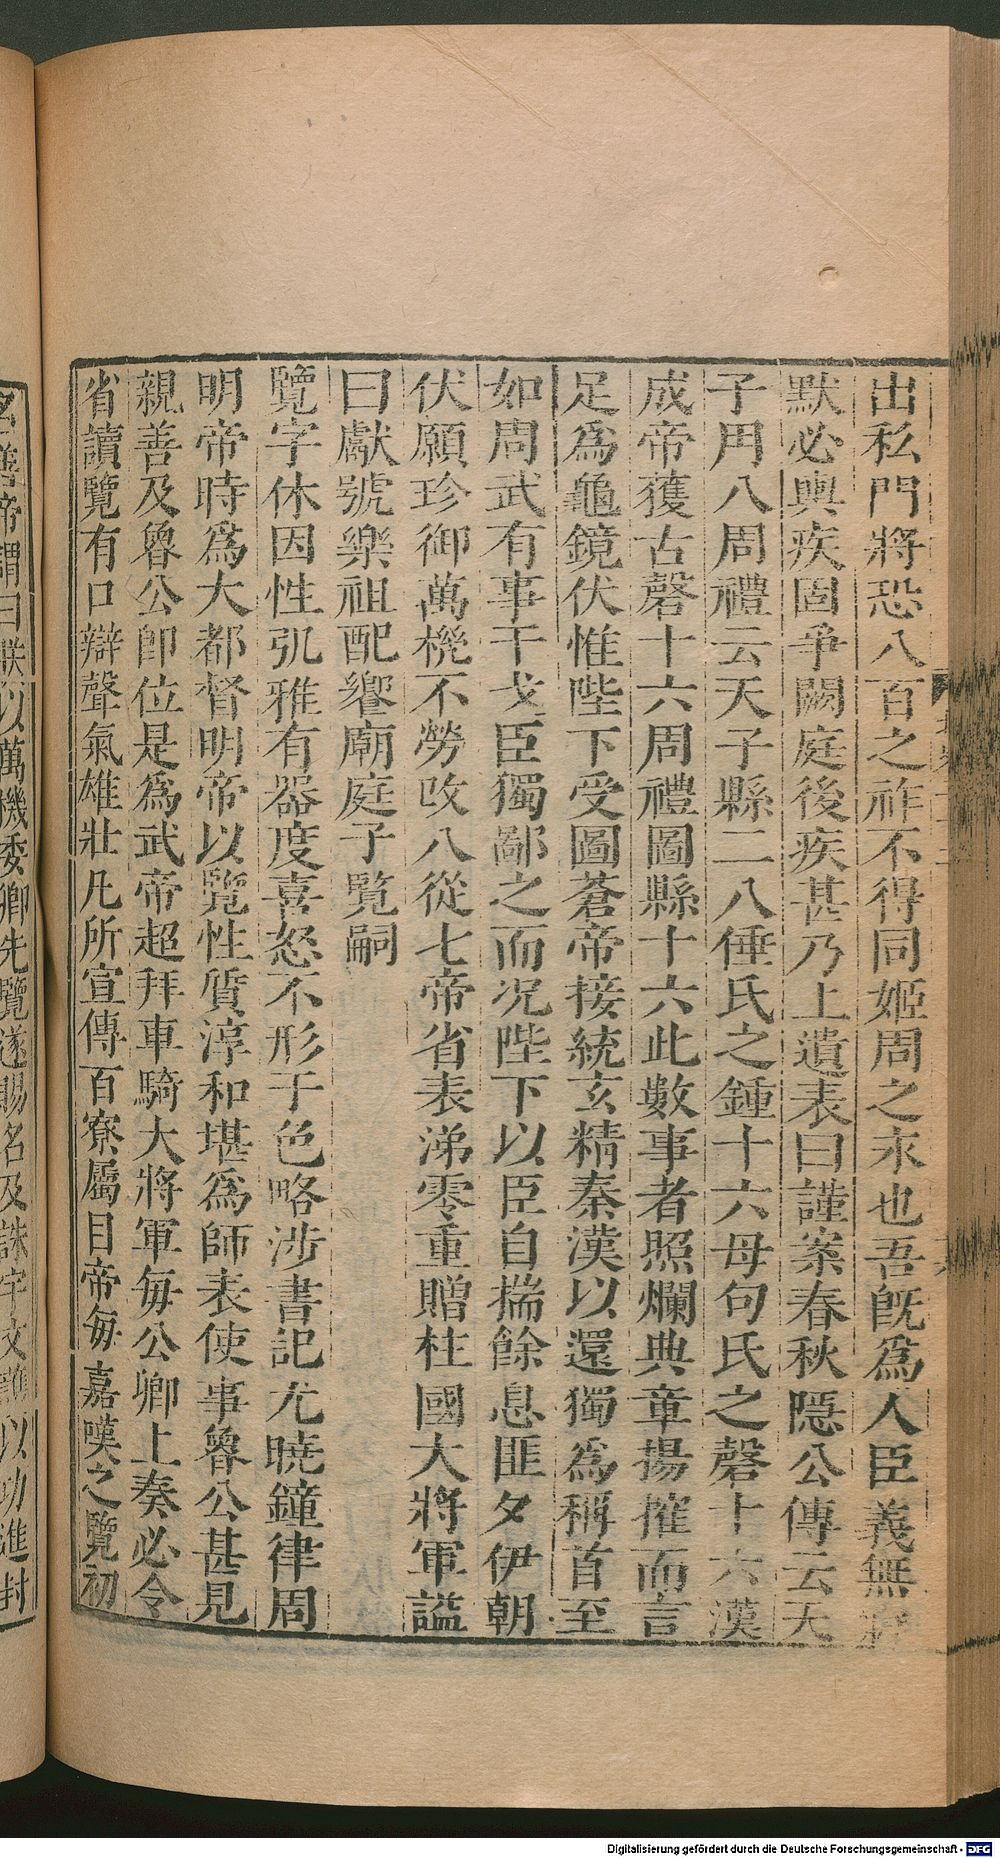 出私門將恐八百之祚不得同姬周之永也吾旣爲人臣義無
默必輿疾固爭闕庭後疾甚乃上遺表曰謹案春秋隱公傳云天
子用八周禮云天子縣二八倕氏之鍾十六母句氏之磬十六漢
成帝獲古磬十六周禮圖縣十六此數事者照爛典章揚搉而言
足爲龜鏡伏惟陛下受圖蒼帝接統玄精秦漢以還獨爲稱首至
如周武有事干戈臣獨鄙之而况陛下以臣自揣餘息匪夕伊朝
伏願珍御萬機不勞攺八從七帝省表涕零重贈柱國大將軍謚
曰獻號樂祖配饗廟庭子覽嗣
覽字休因性弘雅有器度喜怒不形于色略涉書記尤曉鐘律周
明帝時爲大都督明帝以覽性質淳和堪爲師表使事魯公甚見
親善及魯公卽位是爲武帝超拜車騎大將軍每公卿上奏必令
省讀覽有口辯聲氣雄壯凡所宣傳百寮屬目帝每嘉嘆之覽初
名善帝謂曰朕以萬機委卿先覽遂賜名及誅宇文護以功進封
Digitalisierung gefördert durch die Deutsche Forschungsgemeinschaft - DFG